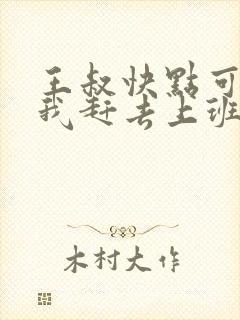 王叔快點可
我赶去上班
木村大作